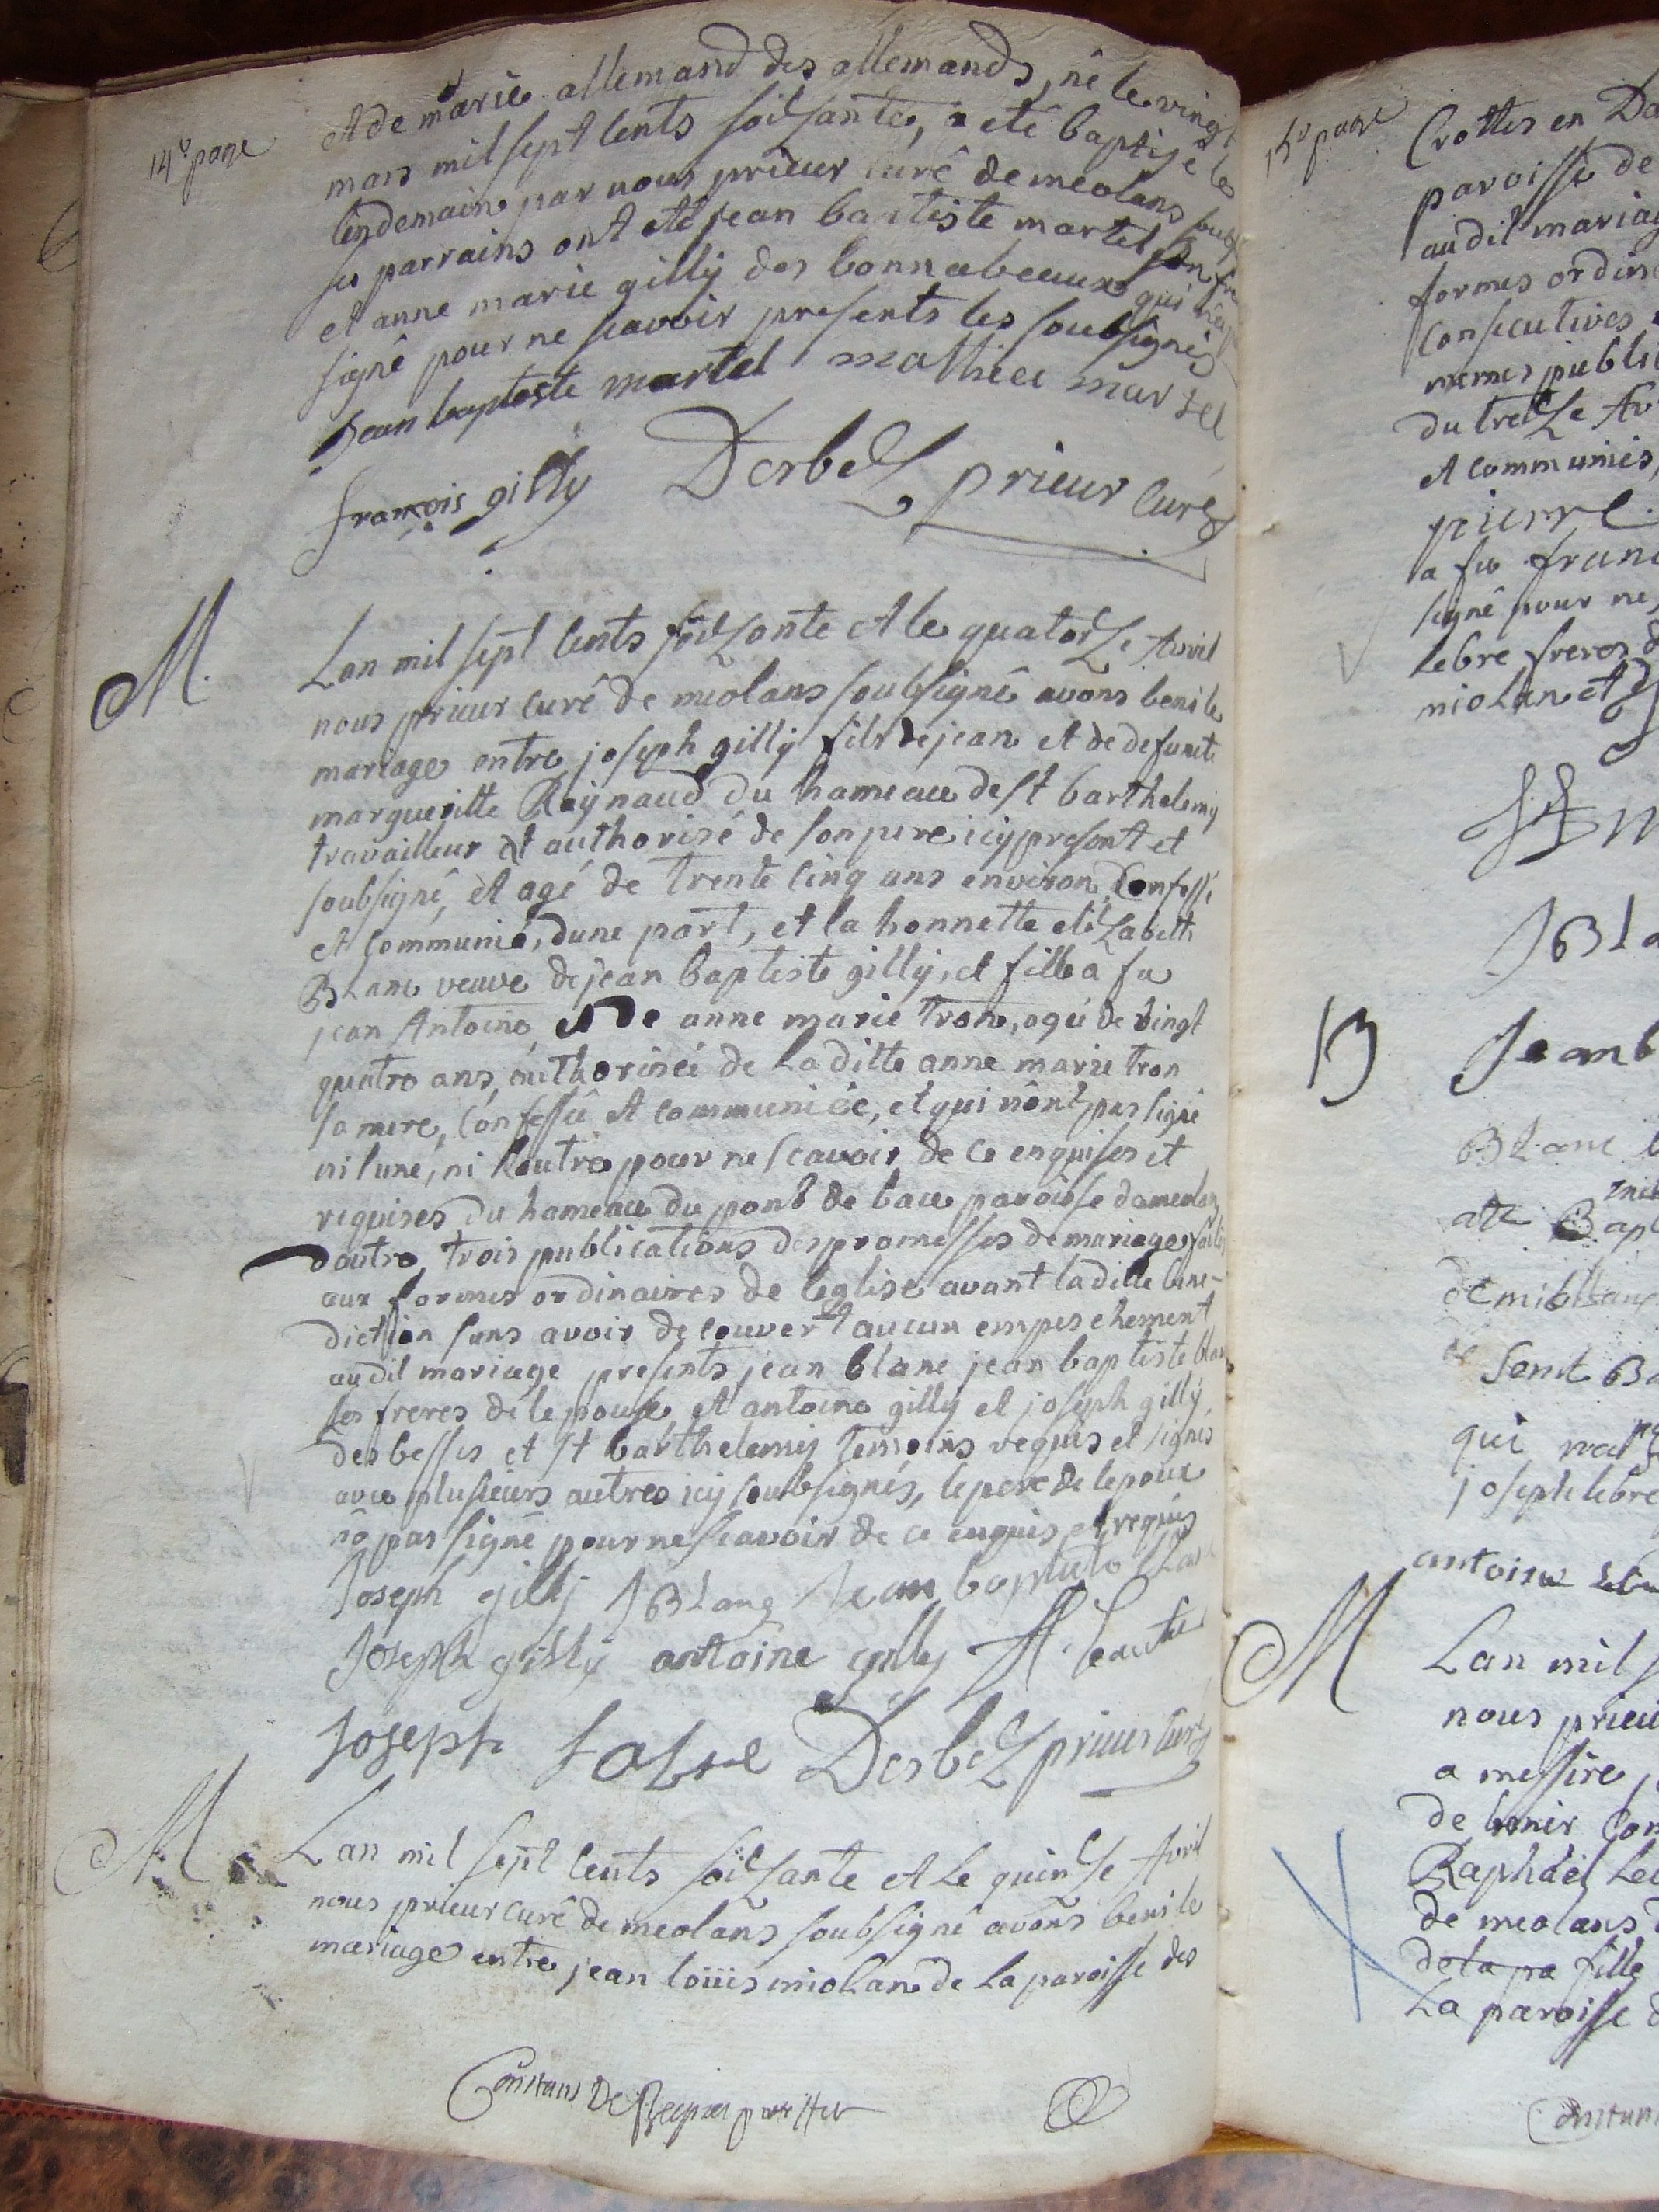 14e page
et de marie allemand des allemands, né le vingt
mars mil sept cents soisante, a eté baptisé le
lendemain par nous prieur curé de meolans soubs
ses parrains ont eté jean baptiste martel son fre
et anne marie gilly des bonnabeaux qui
signé pour ne scavoir presents les soubsignés
Jean baptiste martel mathieu martel
françois gilly Derbez prieur curé
M.
Lan mil sept cents soizante et le quatorze Avril
nous prieur curé de meolans soubsigné avons beni le
mariage entre joseph gilly fils de jean et de defuncte
margueritte Raynaud du hameau de st barthelemy
travailleur et authorisé de son pere icy present et
soubsigné, et agé de trente cinq ans environ, Confessé
et communié, dune part, et la honnette elizabeth
BLanc veuve de jean baptiste gilly, et fille a fu
jean Antoine, et de anne marie tron, agée de vingt
quatre ans, authorisée de La ditte anne marie tron
sa mere, Confessée et communiée, et qui nont pas signé
ni lune, ni lautre pour ne scavoir de ce enquises et
requises du hameau du pont de baue paroisse de meolans
dautre, trois publications des promesses de mariage faites
aux formes ordinaires de leglise avant la ditte bene-
diction sans avoir decouvert aucun empeschement
audit mariage presents jean blanc jean baptiste blanc
les freres de lepouse, et antoine gilly et joseph gilly
des besses et st barthelemy temoins requis et signés
avec plusieurs autres icy soubsignés, le pere de lepoux
nõ pas signé pour ne scavoir de ce enquis et requis
Joseph gilly JBLanc Jean baptiste blanc
Joseph gilly antoine gilly
Joseph fabre Derbez prieur curé
M.
Lan mil sept cents soizante et le quinze Avril
nous prieur curé de meolans soubsigné avons beni le
mariage entre jean loüis mioLan de La paroisse des
15e page
Crottes en Da
paroisse de
audit mariag
formes ordina
consecutives
memes publi
du treize Av
et communiés,
pierre
a fu franc
signé pour ne
Lebre freres d
mioLan et
JBLa
B
Jean b
BLanc
ate Bapt
de
Senit Ba
qui
joseph lebre
antoine
M
Lan mil s
nous prieu
a messire
de benir con
Raphaël Le
de meolans
de la pa fille
La paroisse d